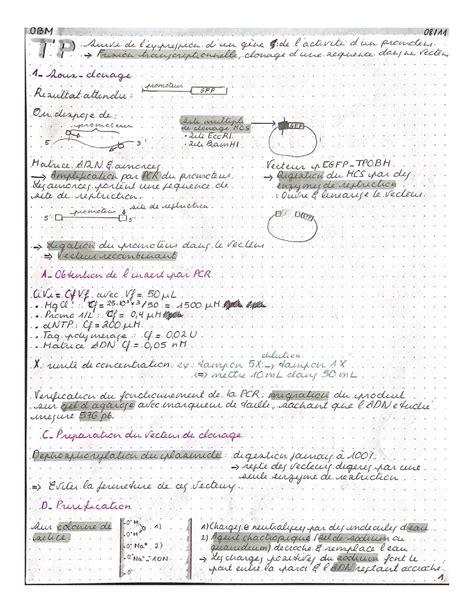 OBM
08/11
TP Suivi de l'expression d'un gène & de l'activité d'un promoteur.
→ Fusion transcriptionnelle, clonage d'une séquence dans un vecteur
1_ Sous-clonage
Résultat attendu :
promoteur
GFP
On dispose de :
promoteur
Site multiple
de clonage MCS
- site EcoRI
- site BamHI
GFP
Matrice ADN & amorces
→ Amplification par PCR du promoteur.
Les amorces portent une séquence de
site de restriction.
Vecteur pEGFP_TPOBM
→ Digestion du MCS par des
enzymes de restriction
: Ouvre & linéarise le vecteur.
5'
promoteur
site de restriction
5'
→ Ligation du promoteur dans le vecteur
⇒ Vecteur recombinant
A_ Obtention de l'insert par PCR
CiVi = CfVf avec Vf = 50 µL
• MgCl : Cf = 25·10^3 × 3/50 = 1500 µM
• Promo 1/2 : Cf = 0,4 µM
• dNTP : Cf = 200 µM
• Taq polymerase : Cf = 0,02 U
• Matrice ADN Cf = 0,05 nM
X : unité de concentration. ex : tampon 5X → tampon 1X
dilution
⇔ mettre 10 mL dans 50 mL
Vérification du fonctionnement de la PCR : migration du produit
sur gel d'agarose avec marqueur de taille, sachant que l'ADN étudié
mesure 576 pb.
C_ Préparation du vecteur de clonage
Déphosphorylation du plasmide : digestion jamais à 100%
→ reste des vecteurs digérés par une
seule enzyme de restriction.
⇒ Eviter la fermeture de ces vecteurs
D_ Purification
Sur colonne de
silice
1)
2)
ADN
1) Chargée & neutralisée par des molécules d'eau
2) Agent chaotropique (sel de sodium ou
guanidium) décroche & remplace l'eau
→ les charges positives du sodium font le
pont entre la paroi & l'ADN restant accroché
1.